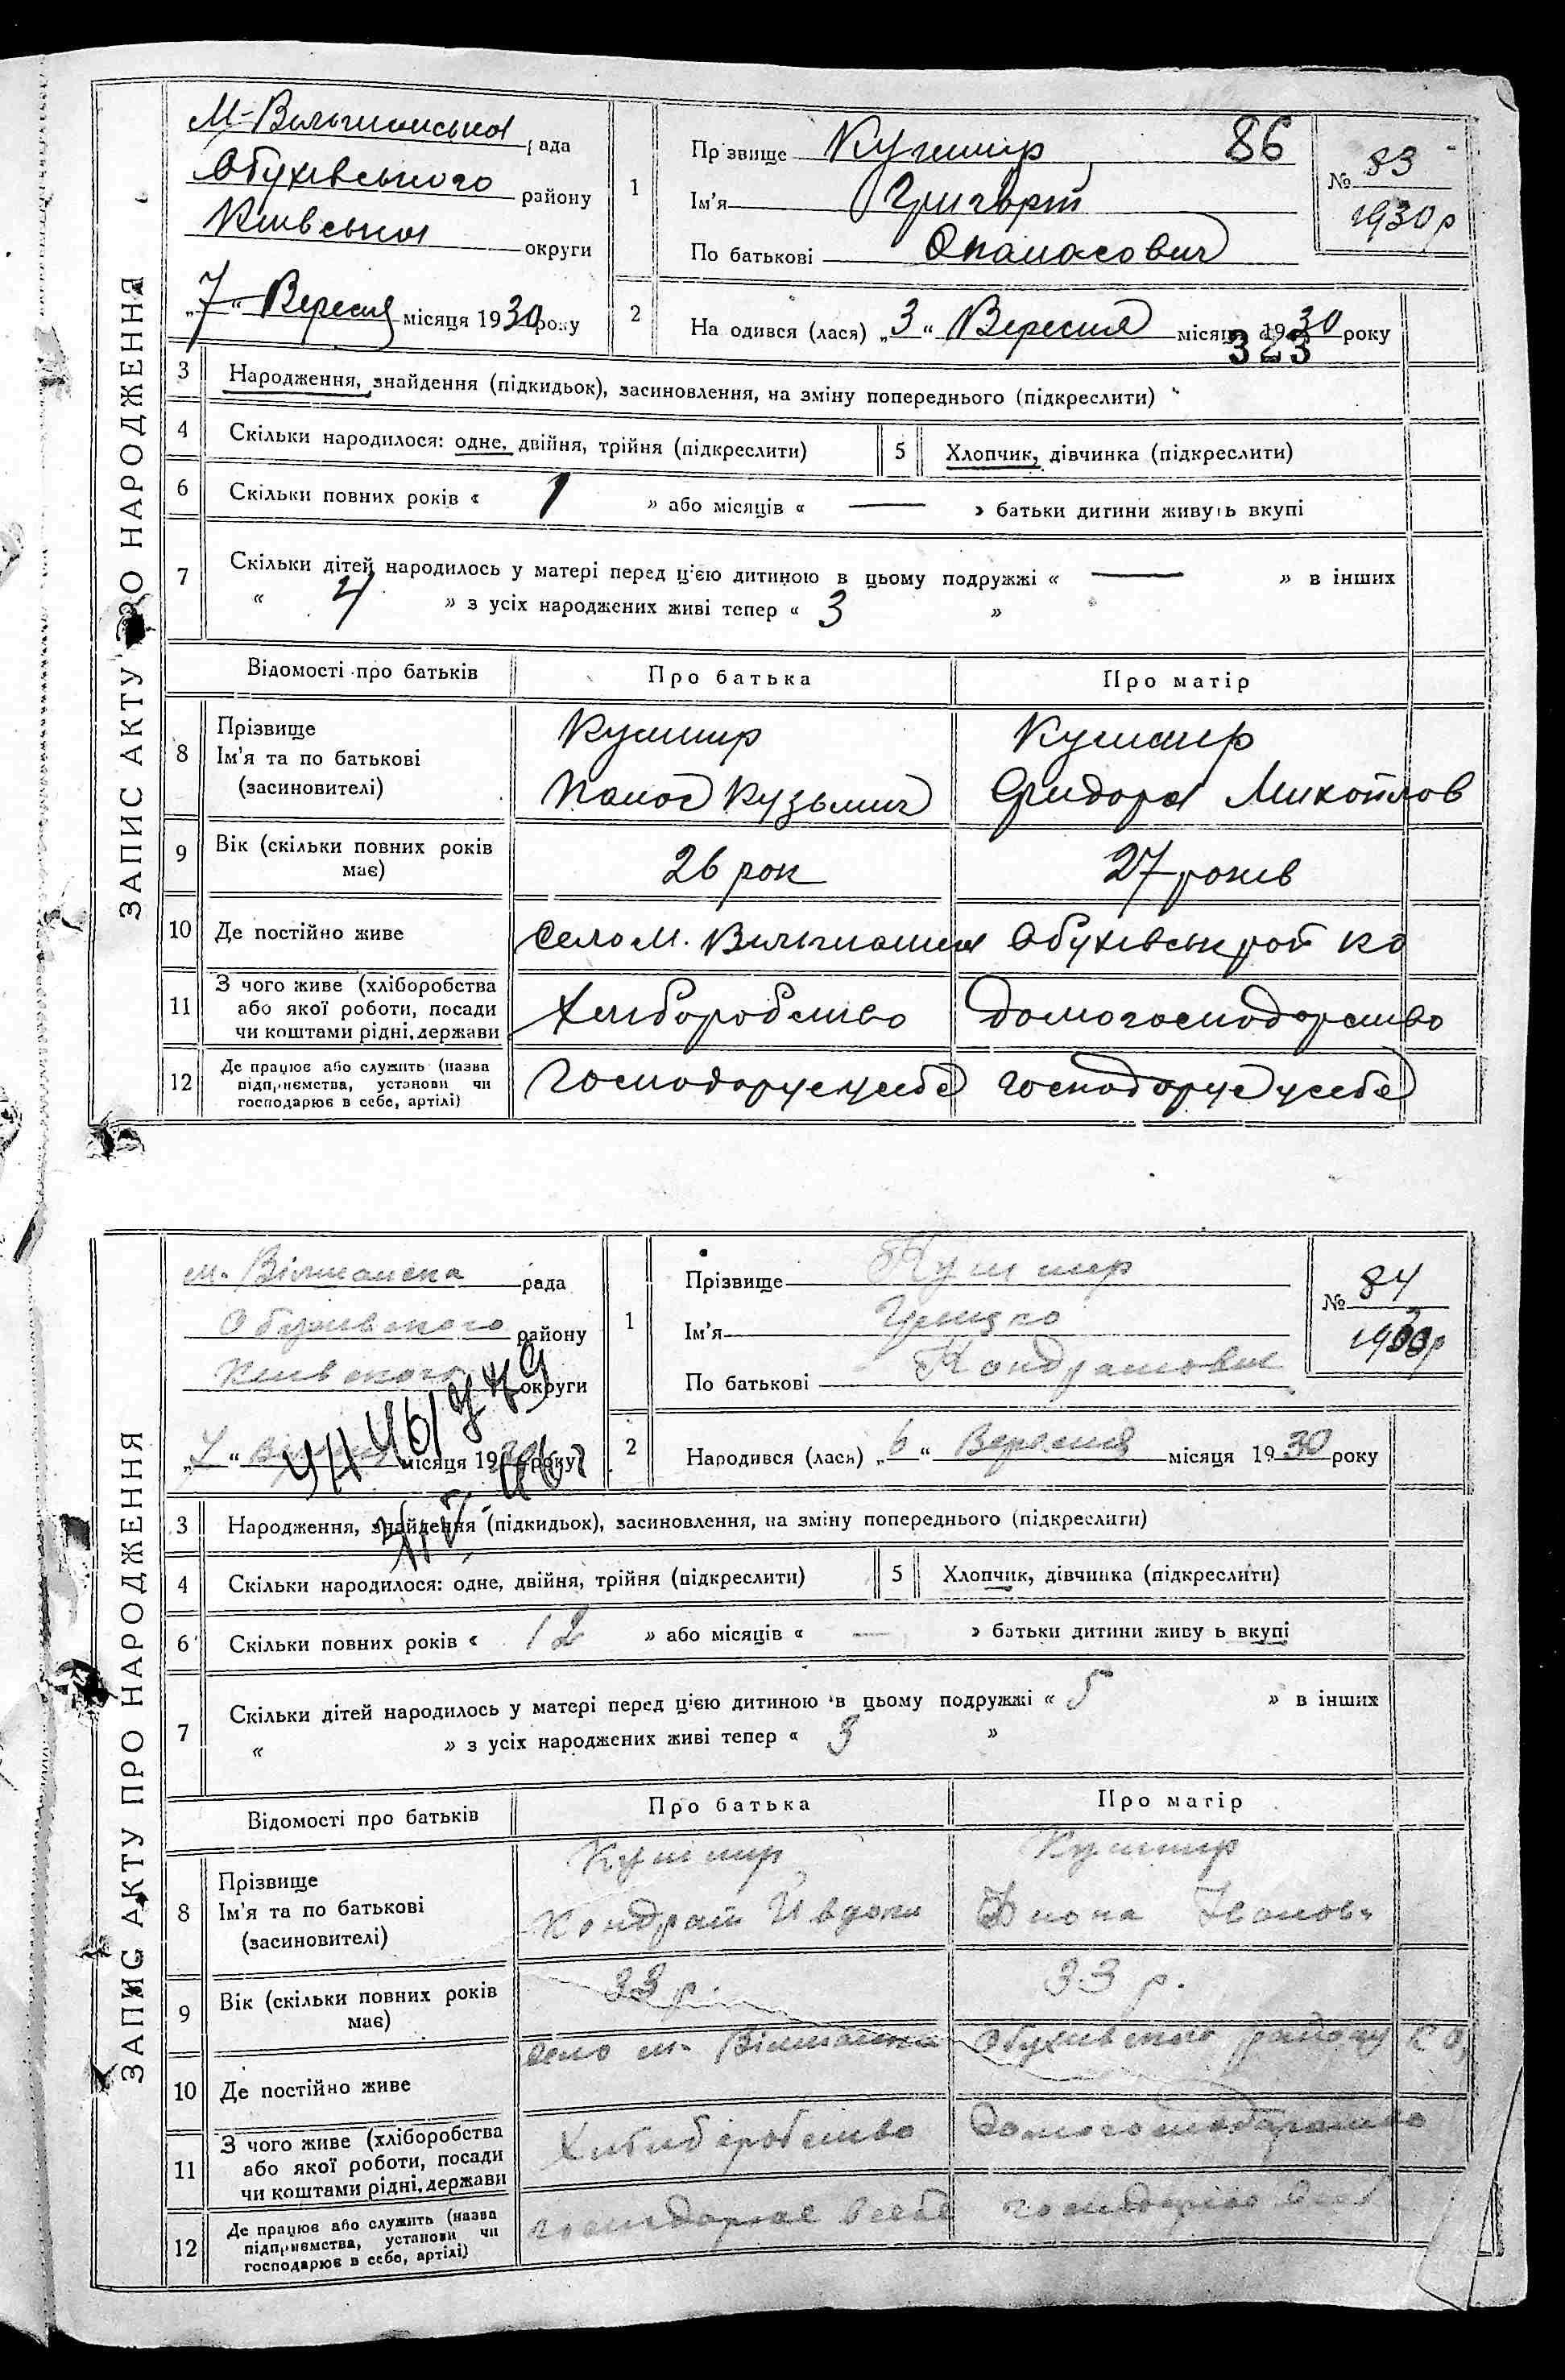 ЗАПИС АКТУ ПРО НАРОДЖЕННЯ
М-Вільшанська рада
Обухівського району
Київська округи
„7“ Вересня місяця 1930 року
1
Прізвище Кушнір 86
Ім'я Григорій
По батькові Опанасович
№ 83
1930 р
2
На одився (лася) „3“ Вересня місяця 1930 року
323
3 Народження, знайдення (підкидьок), засиновлення, на зміну попереднього (підкреслити)
4 Скільки народилося: одне, двійня, трійня (підкреслити)
5 Хлопчик, дівчинка (підкреслити)
6 Скільки повних років « 1 » або місяців « — » батьки дитини живуть вкупі
7 Скільки дітей народилось у матері перед цією дитиною в цьому подружжі « — » в інших
« 4 » з усіх народжених живі тепер « 3 »
Відомості про батьків Про батька Про матір
8 Прізвище
Ім'я та по батькові
(засиновителі)
Кушнір Кушнір
Панас Кузьмич Микойлов
9 Вік (скільки повних років має) 26 рок 27 років
10 Де постійно живе село М. Вільшанка Обухівськ рой КО
11 З чого живе (хліборобства
або якої роботи, посади
чи коштами рідні, держави
Хліборобство домогосподарство
12 Де працює або служить (назва
підприємства, установи чи
господарює в себе, артілі)
господарує усебе господарує усебе
ЗАПИС АКТУ ПРО НАРОДЖЕННЯ
м. Вільшанска рада
Обухивского району
Київского округи
„7“ місяця 19 року
1
Прізвище Кушнір
Ім'я Грицко
По батькові Кондратович
№ 84
1930р
2
Народився (лась) „6“ Вересня місяця 1930 року
3 Народження, знайдення (підкидьок), засиновлення, на зміну попереднього (підкреслити)
4 Скільки народилося: одне, двійня, трійня (підкреслити)
5 Хлопчик, дівчинка (підкреслити)
6 Скільки повних років « 12 » або місяців « — » батьки дитини живу ь вкупі
7 Скільки дітей народилось у матері перед цією дитиною в цьому подружжі « 5 » в інших
« » з усіх народжених живі тепер « 3 »
Відомості про батьків Про батька Про матір
8 Прізвище
Ім'я та по батькові
(засиновителі)
Кушнир Кушнир
Кондрат Иванов.
9 Вік (скільки повних років має) 33 р. 33 р.
10 Де постійно живе село м. Вільшанка Обухивского району К О,
11 З чого живе (хліборобства
або якої роботи, посади
чи коштами рідні, держави
домогосподарство
12 Де працює або служить (назва
підприємства, установи чи
господарює в себе, артілі)
господарює всебе господарює всебе